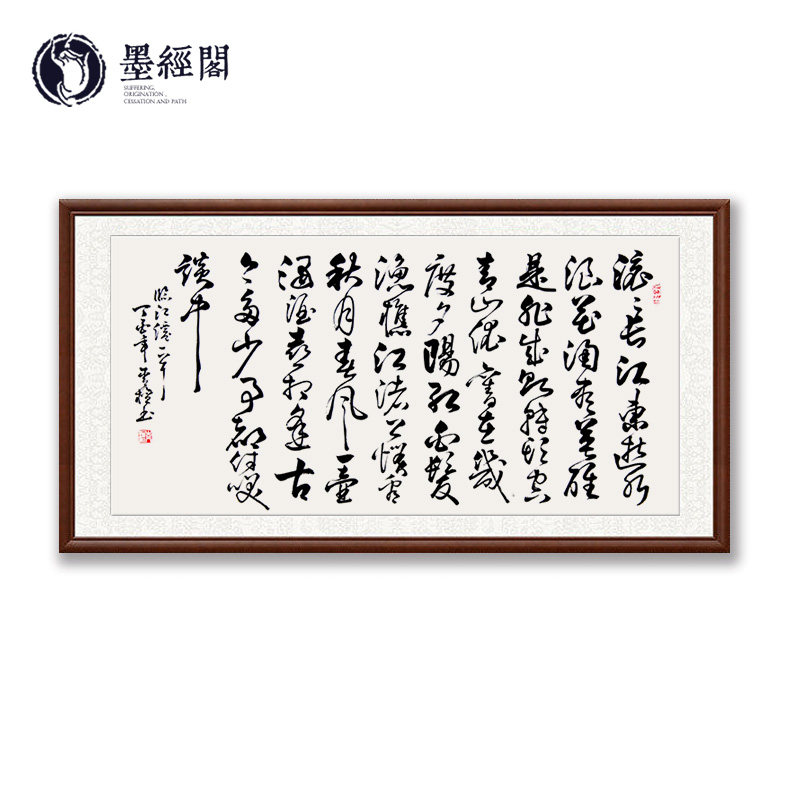 墨經閣
SUFFERING,
ORIGINATION,
CESSATION AND PATH
滚滚長江東逝水
浪花淘尽英雄
是非成敗轉頭空
青山依舊在幾
度夕陽紅白髮
漁樵江渚上慣看
秋月春風一壺
濁酒喜相逢古
今多少事都付笑
談中
臨江僊一首
丁酉年